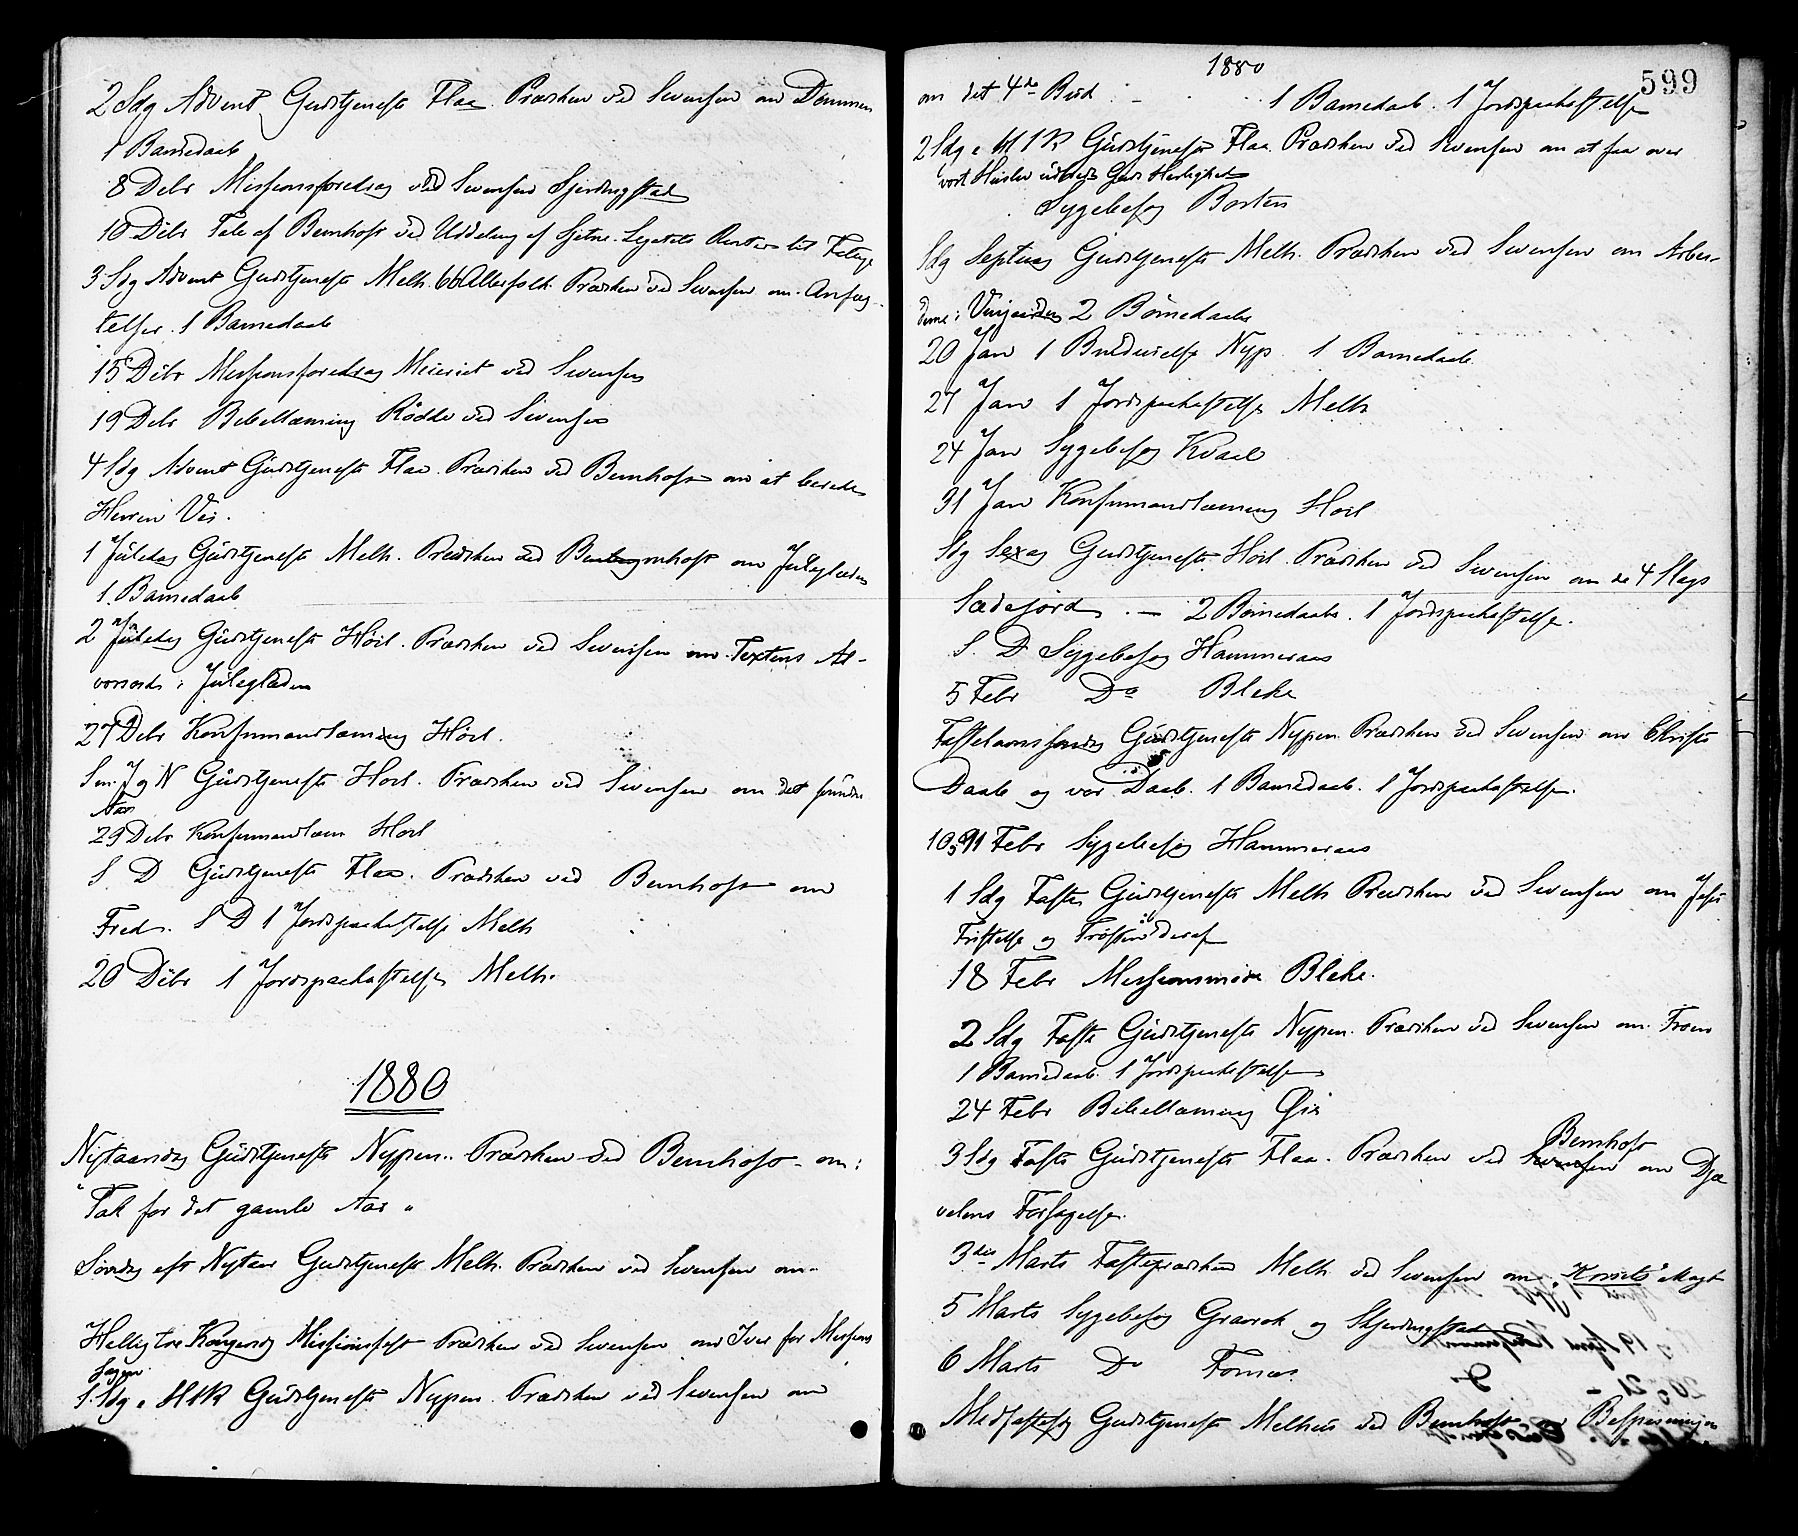 2 Sdg Advent Gudstjeneste Flaa. Prædiken ved Svensen om Dommen
1 Barnedaab
8 Debr Missionsforedrag ved Svensen Skjerdingstad
10 Debr Tale af Bernhoft ved Uddeling af Legatets Renter til Fattige
3 Sdg Advent Gudstjeneste Melh. 66 Altersfolk. Prædiken ved Svensen om Anfæg-
telser. 1 Barnedaab
15 Debr Missionsforedrag Meieriet ved Svensen
19 Debr Bibellæsning Rødde ved Svensen
4 Sdg Advent Gudstjeneste Flaa. Prædiken ved Bernhoft om at berede
Herren Vei.
1 Juledag Gudstjeneste Melh. Prædiken ved Bernhoft om Juleglæden
1. Barnedaab
2 Juledag Gudstjeneste Höil. Prædiken ved Svensen om Textens Al-
vorsord i Juleglæden
27 Debr Konfirmandlæsning Höil.
Søn. J og N Gudstjeneste Höil. Prædiken ved Svensen om det svundne
Aar
29 Debr Konfirmandlæsn Höil
S. D Gudstjeneste Flaa. Prædiken ved Bernhoft om
Fred. S D 1 Jordspaakastelse Melh
20 Debr 1 Jordspaakastelse Melh.
1880
Nytaarsdag Gudstjeneste Nypen. Prædiken ved Bernhoft om:
"Tak for det gamle Aar"
Søndag eft Nytaar Gudstjeneste Melh. Prædiken ved Svensen om
Hellig tre Kongersdag Missionsfest Prædiken ved Svensen om Iver for Missions
Sagen
1. Sdg e H3K Gudstjeneste Nypen. Prædiken ved Svensen om
1880
599
om det 4de Bud. - 1 Barnedaab. 1 Jordspaakastelse
2 Sdg e H 3 K Gudstjeneste Flaa. Prædiken ved Svensen om at faa over
vort Huslev udbredt Guds Herlighed
Sygebesøg Borten
Sdg Septuag Gudstjeneste Melh. Prædiken ved Svensen om Arbei-
derne i Vingaarden 2 Børnedaab
20 Jan 1 Brudevielse Nyp. 1 Barnedaab
27 Jan 1 Jordspaakastelse Melh
24 Jan Sygebesøg Kvaal
31 Jan Konfirmandlæsning Höil
Sdg Sexag Gudstjeneste Höil. Prædiken ved Svensen om de 4 Slags
Sædejord. - 2 Børnedaab. 1 Jordspaakastelse.
S. D Sygebesøg Hammeraas
5 Febr Do Bleke
Fastelavnssøndag Gudstjeneste Nypen Prædiken ved Svensen om Christi
Daab og vor Daab. 1 Barnedaab. 1 Jordspaakastelse.
10 og 11 Febr Sygebesøg Hammeraas
1 Sdg Faste Gudstjeneste Melh Prædiken ved Svensen om Jesu
Fristelse og Trøsten deraf
18 Febr Missionsmøde Bleke.
2 Sdg Faste Gudstjeneste Nypen. Prædiken ved Svensen om Troen
1 Barnedaab. 1 Jordspaakastelse
24 Febr Bibellæsning Øie
Bernhoft
3 Sdg Faste Gudstjeneste Flaa. Prædiken ved Svensen om Djæ
velens Forsagelse.
3die Marts Fasteprædiken Melh ved Svensen om "Korsets" Magt
5 Marts Sygebesøg Gravrok og Skjerdingstad
6 Marts Do
Midfastesdg Gudstjeneste Melhus ved Bernhoft Bespisningen